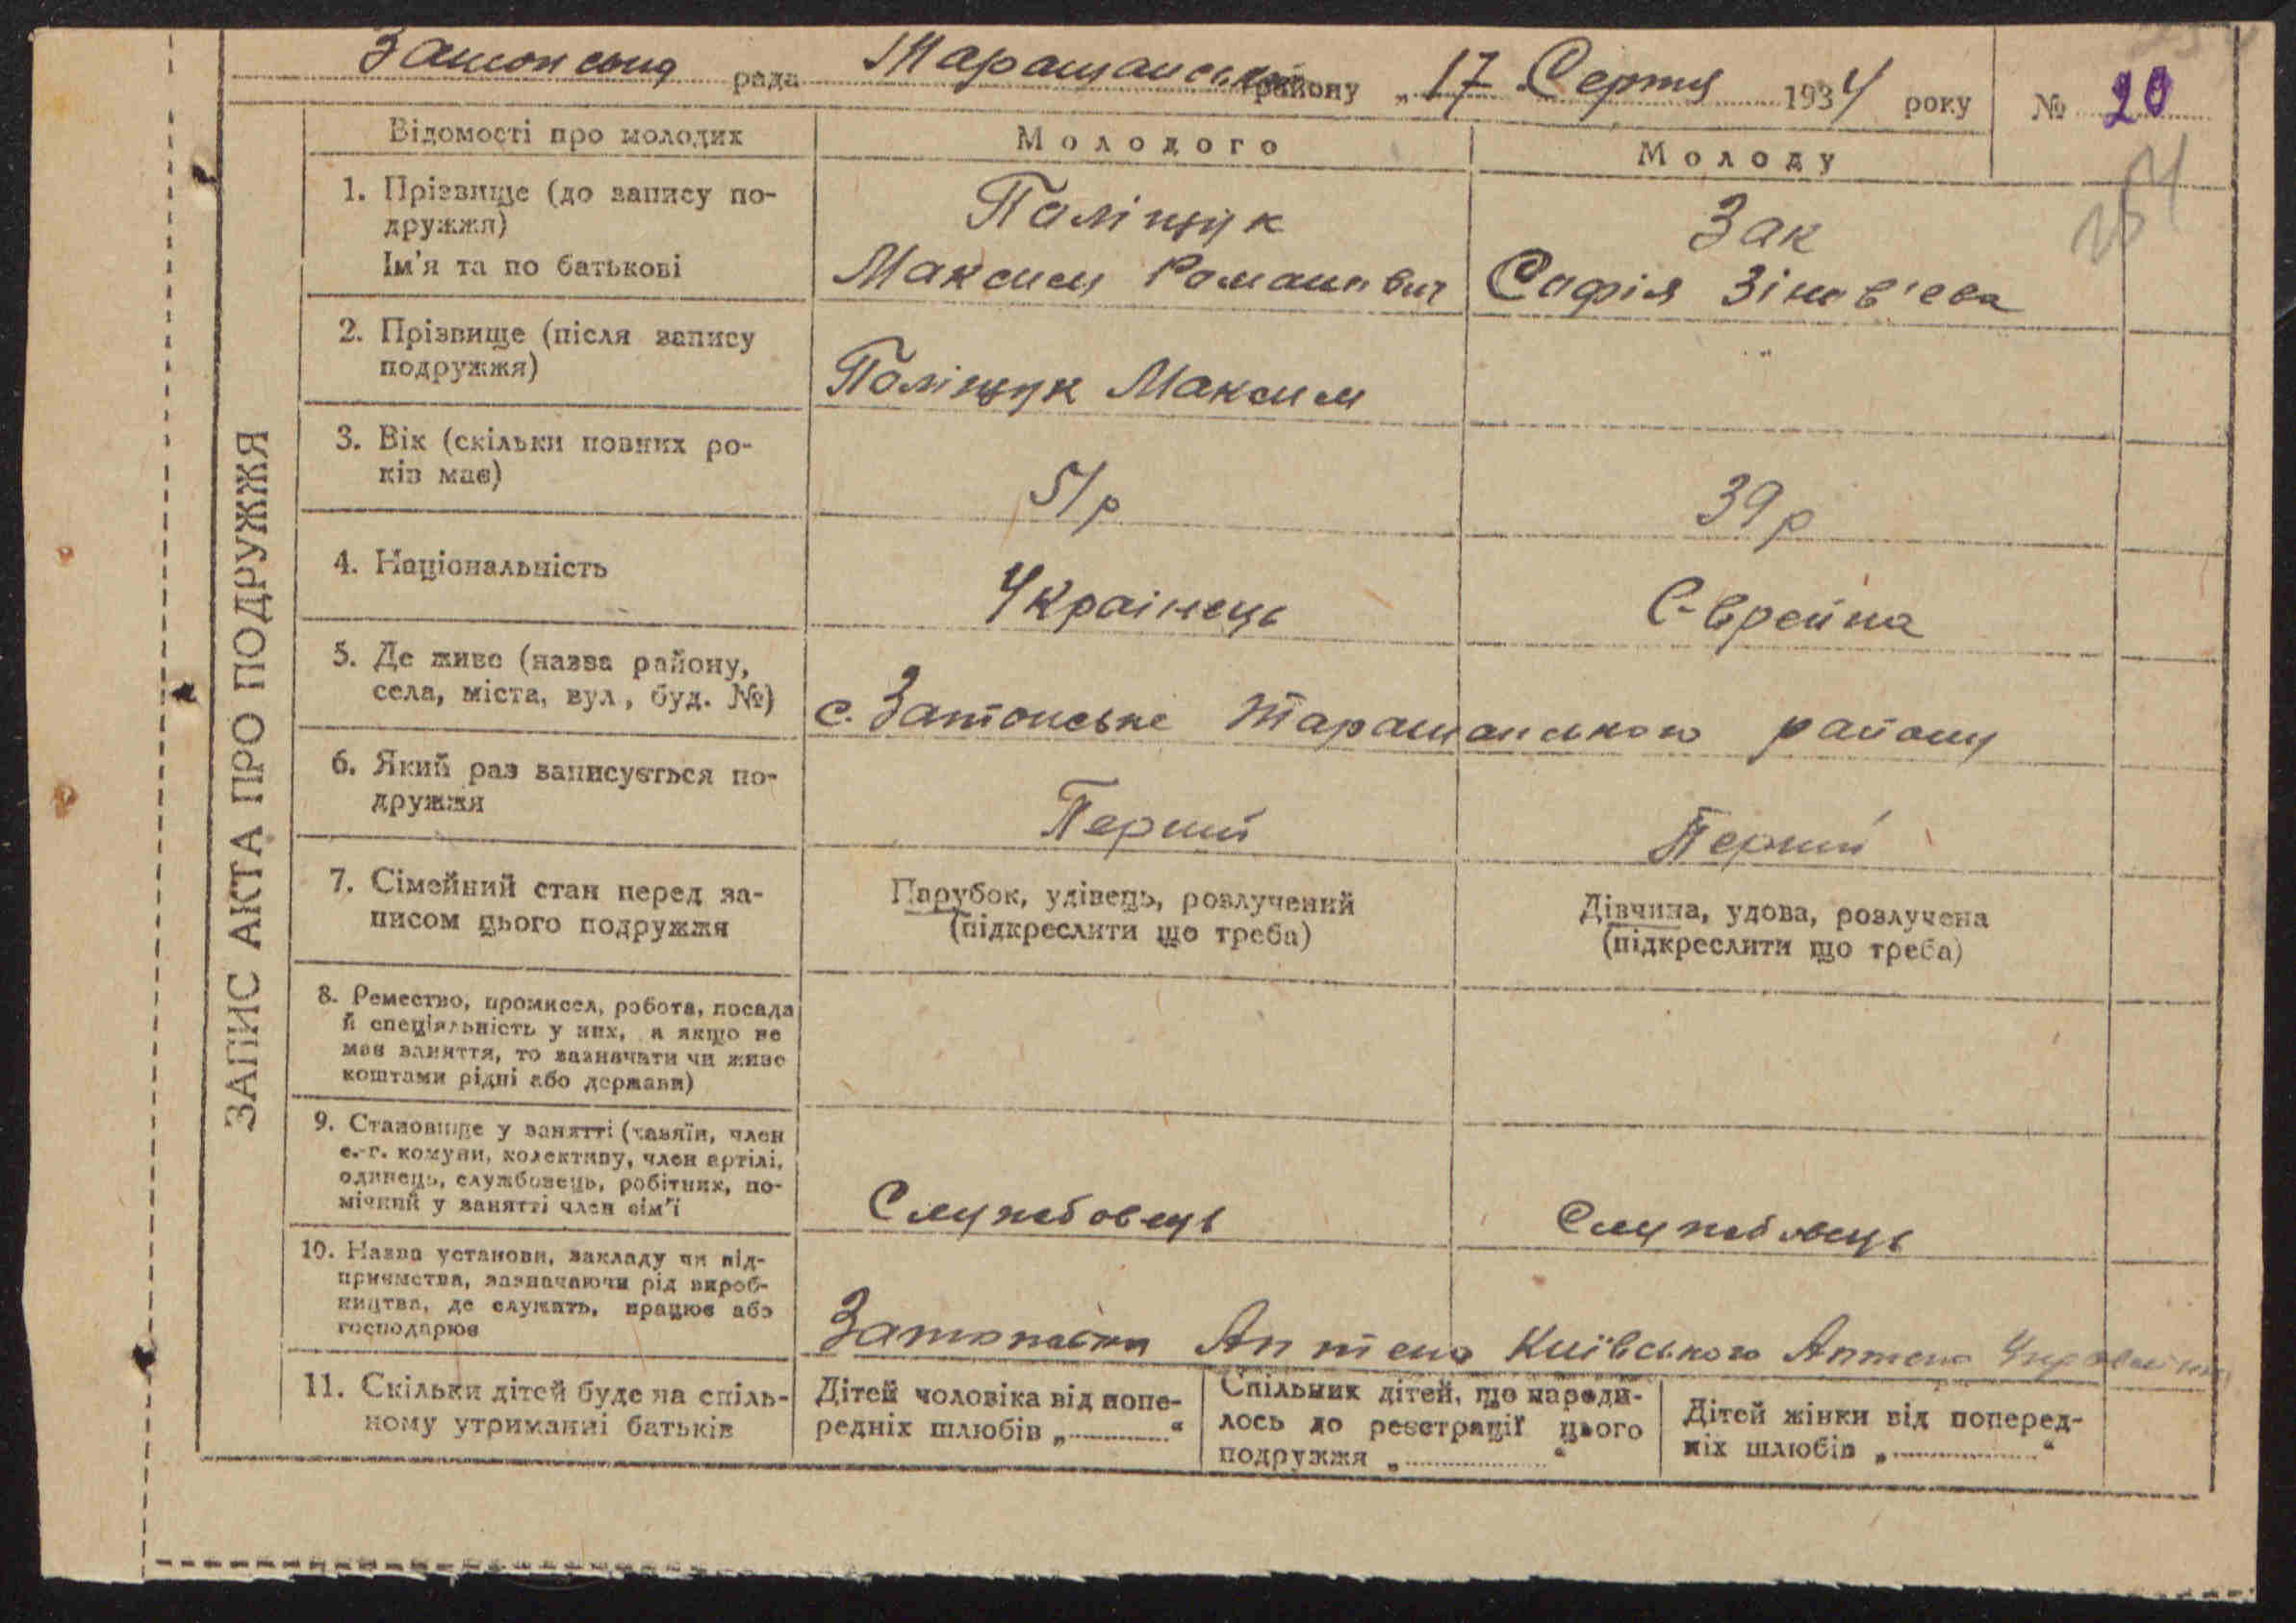 Затонська рада Таращанського району „ 17 Серпня 1934 року № 20
254
ЗАПИС АКТА ПРО ПОДРУЖЖЯ
Відомості про молодих
Молодого
Молоду
1. Прізвище (до запису по-
дружжя)
Ім'я та по батькові
Поліщук
Максим Романович
Зак
Софія Зінов'ева
2. Прізвище (після запису
подружжя)
Поліщук Максим
3. Вік (скільки повних ро-
ків має)
51р
39р
4. Національність
Украінець
Є-врейка
5. Де живе (назва району,
села, міста, вул, буд. №)
с. Затонське Таращанського району
6. Який раз записується по-
дружжя
Перший
Перший
7. Сімейний стан перед за-
писом цього подружжя
Парубок, удівець, розлучений
(підкреслити що треба)
Дівчина, удова, розлучена
(підкреслити що треба)
8. Ремество, промисел, робота, посада
й спеціяльність у них, а якщо не
має заняття, то зазначати чи живе
коштами рідні або держави)
9. Становище у занятті (хазяїн, член
с.-г. комуни, колективу, член артілі,
одинець, службовець, робітник, по-
мічний у занятті член сім'ї
Службовець
Службовець
10. Назва установи, закладу чи під-
приємства, зазначаючи рід вироб-
ництва, де служить, працює або
господарює
Затонська Аптека Київського Аптеко
11. Скільки дітей буде на спіль-
ному утриманні батьків
Дітей чоловіка від попе-
редніх шлюбів „............“
Спільних дітей, що народи-
лось до реєстрації цього
подружжя „..................“
Дітей жінки від поперед-
ніх шлюбів „..................“